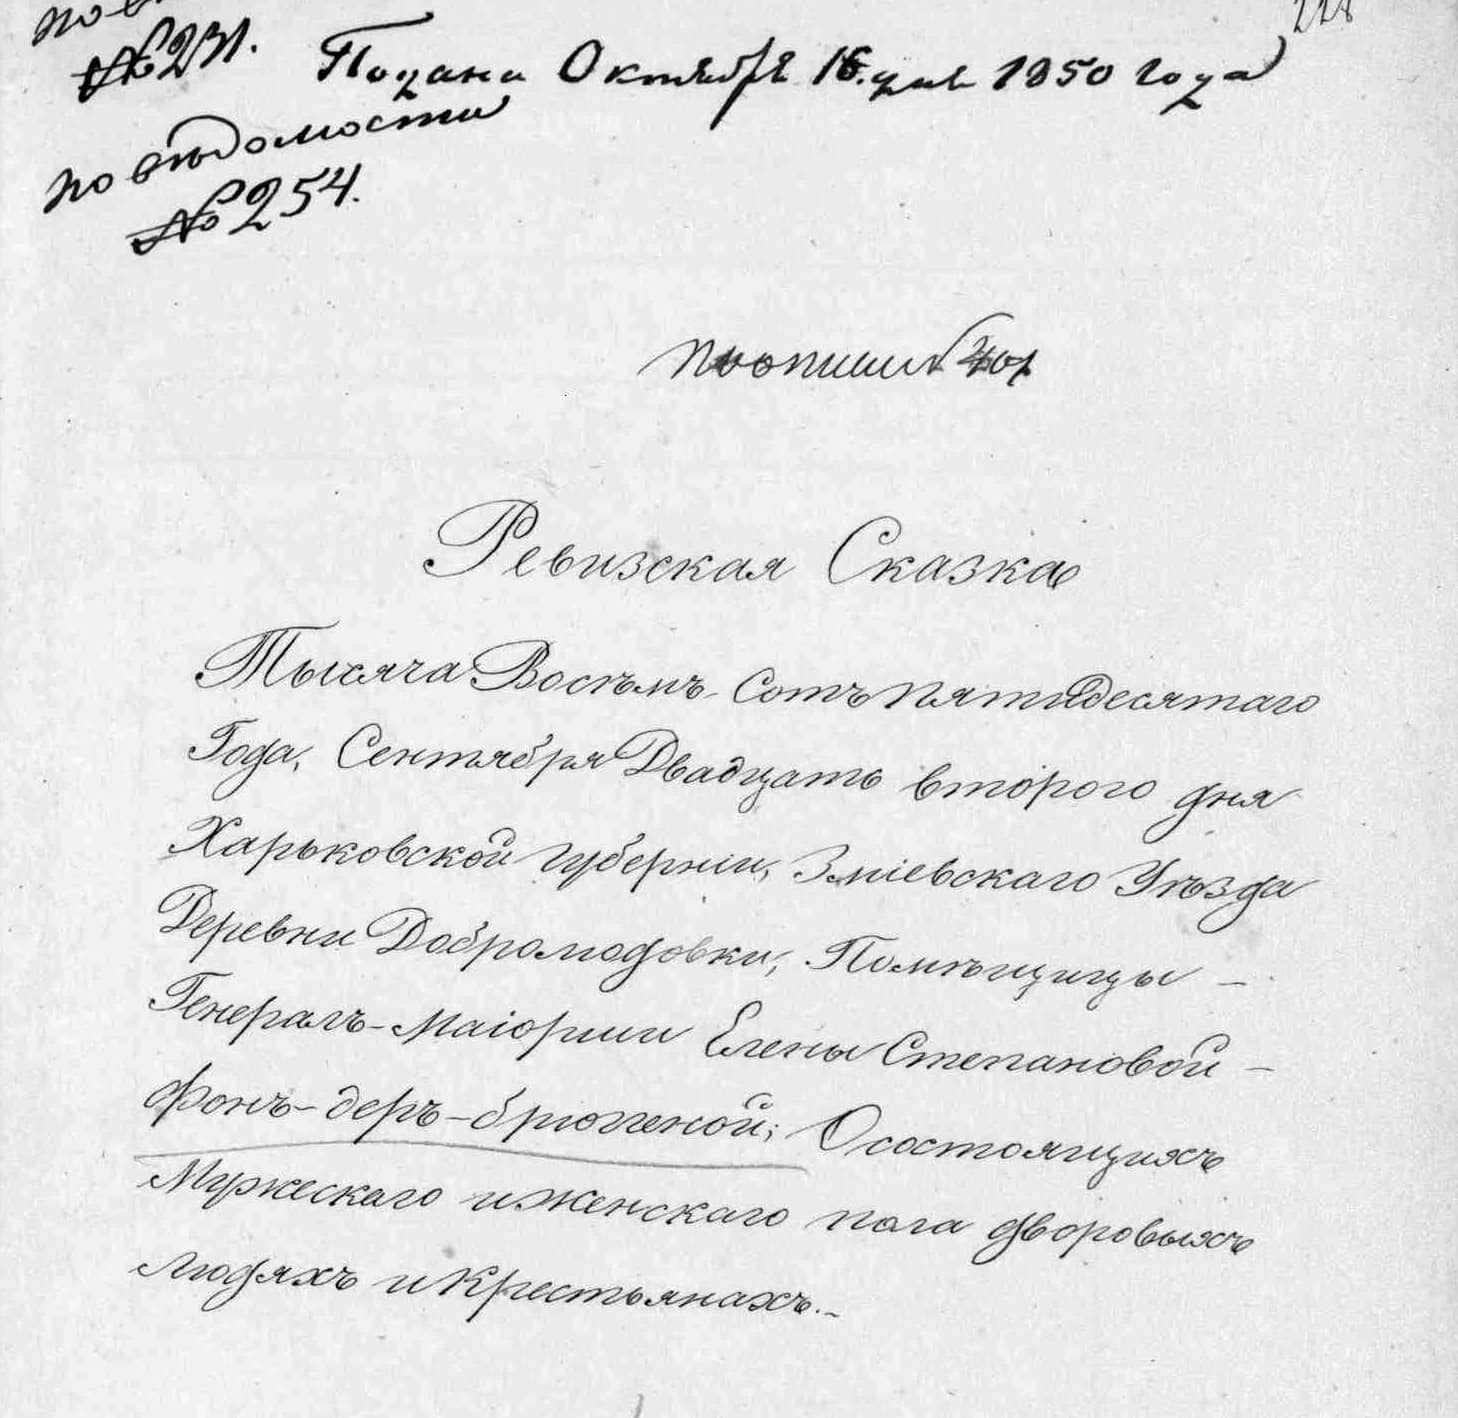 228
№ 231.
Подана Октября 16. дня 1850 года
по вѣдомости
№ 254.
Ревизская Сказка
Тысяча Восѣмъ Сотъ пятидесятаго
Года, Сентября Двадцать втораго дня
Харьковской губерніи, Зміевскаго Уѣзда
Деревни Добромодовки, Помѣщицы –
Генералъ-Маіорши Елены Степановой –
фонъ-деръ-брюггеной; О состоящихъ
Мужескаго и женскаго пола дворовыхъ
людяхъ и крестьянахъ. –